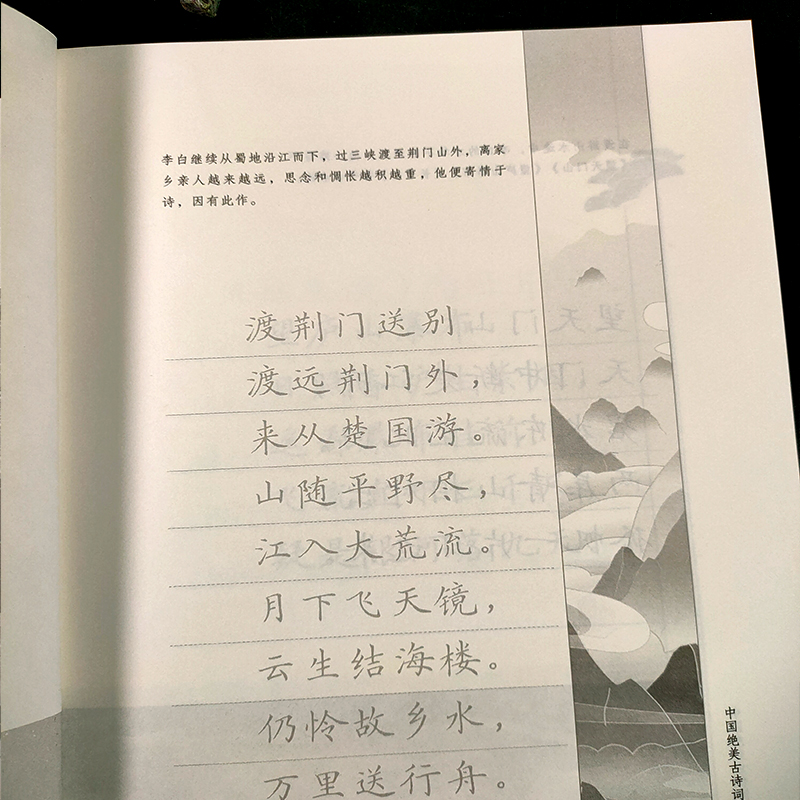 李白继续从蜀地沿江而下，过三峡渡至荆门山外，离家
乡亲人越来越远，思念和惆怅越积越重，他便寄情于
诗，因有此作。
渡荆门送别
渡远荆门外，
来从楚国游。
山随平野尽，
江入大荒流。
月下飞天镜，
云生结海楼。
仍怜故乡水，
万里送行舟。
中国绝美古诗词